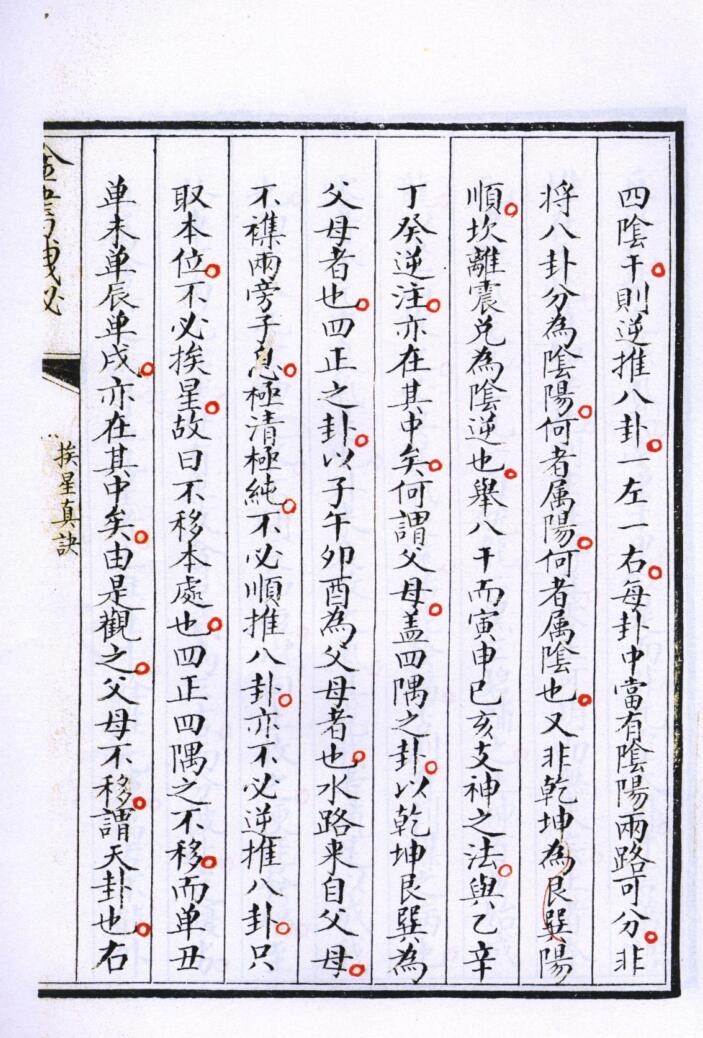 四陰干則逆推八卦一左一右每卦中當有陰陽兩路可分非
將八卦分為陰陽何者属陽何者属陰也又非乾坤為艮巽陽
順坎離震兑為陰逆也舉八干而寅申巳亥支神之法與乙辛
丁癸逆注亦在其中矣何謂父母盖四隅之卦以乾坤艮巽為
父母者也四正之卦以子午卯酉為父母者也水路来自父母
不襍兩旁子息極清極純不必順推八卦亦不必逆推八卦只
取本位不必挨星故曰不移本處也四正四隅之不移而单丑
单未单辰单戌亦在其中矣由是觀之父母不移謂天卦也右
挨星真訣